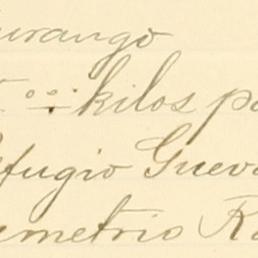 urango
kilos pa
efugio Gueva
emetrio Ra